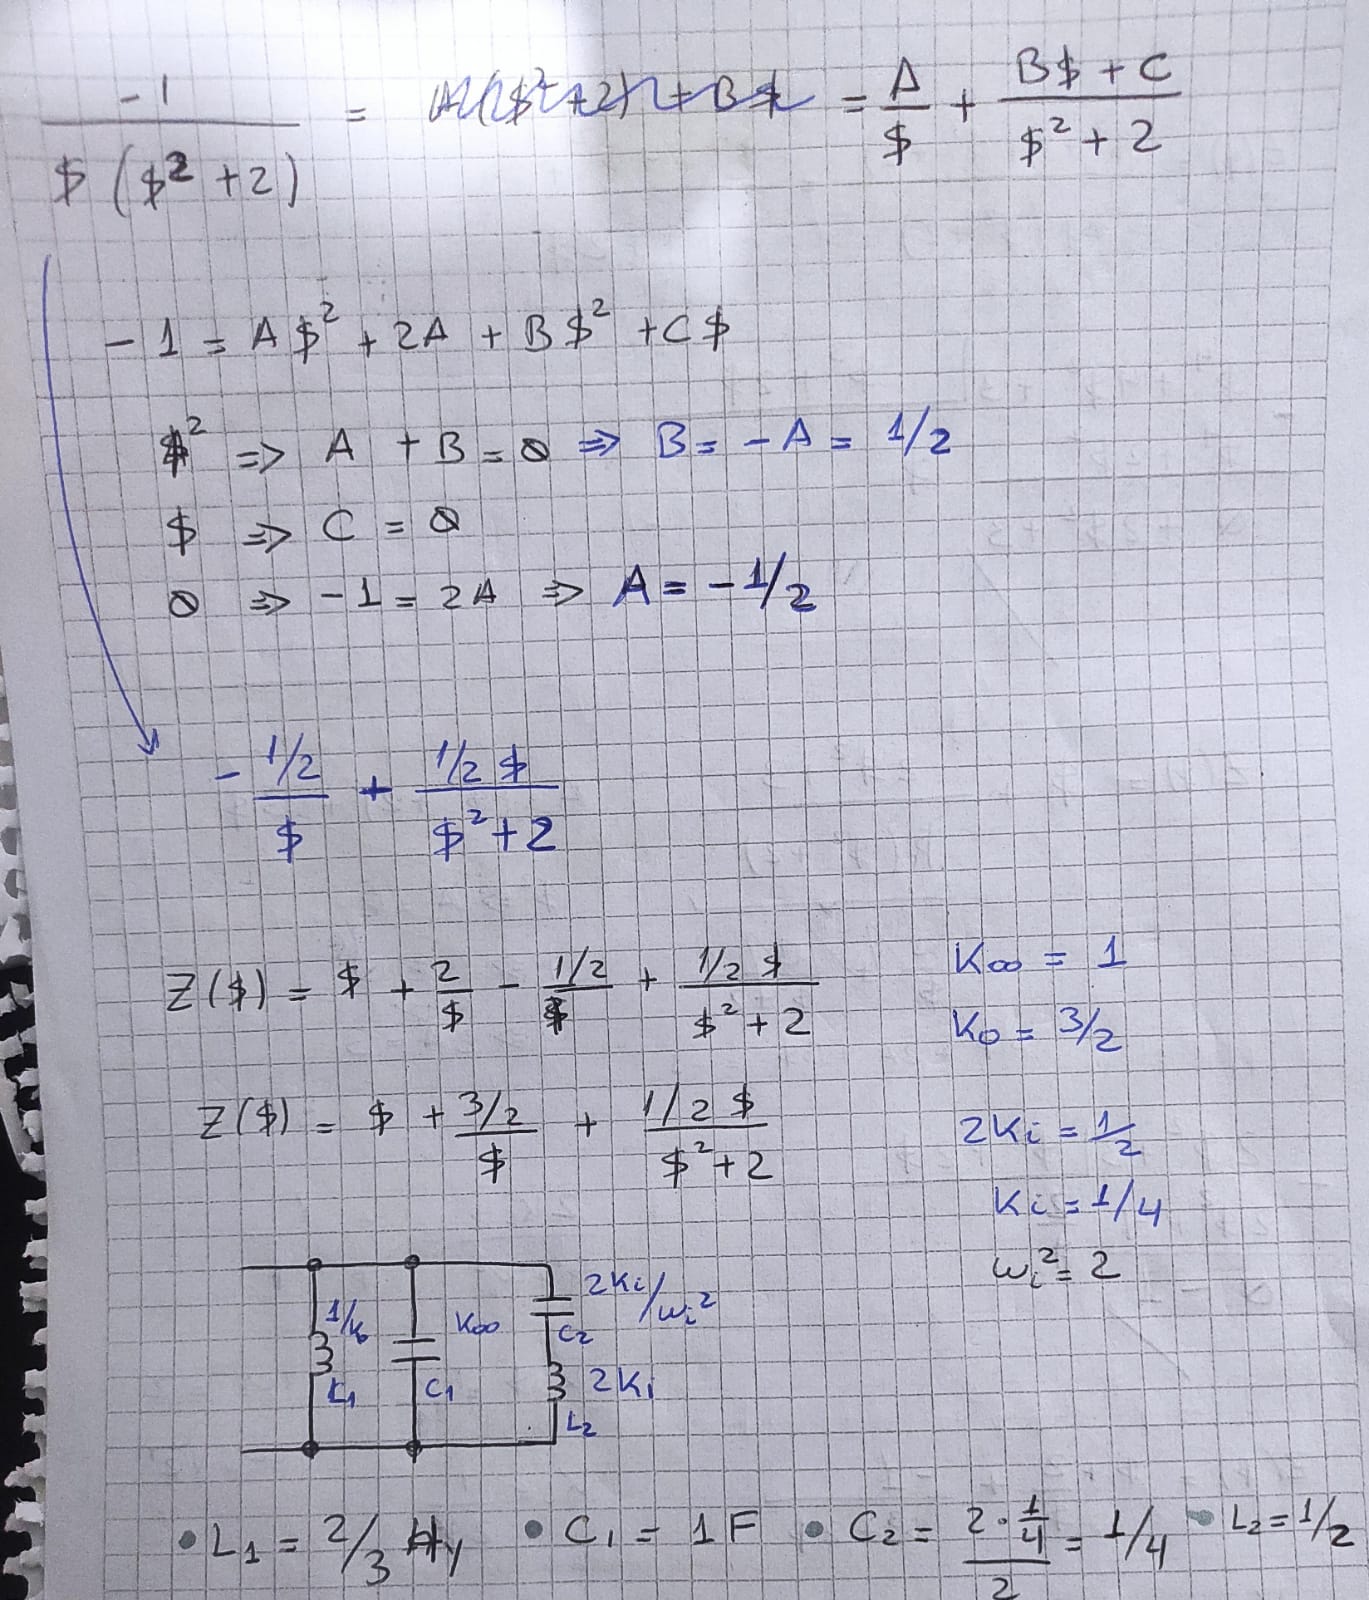 -1 / $ ($² + 2) = A($² + 2) + B$ = A / $ + B$ + C / $² + 2
- 1 = A$² + 2A + B$² + C$
$² ⇒ A + B = 0 ⇒ B = - A = 1/2
$ ⇒ C = 0
0 ⇒ - 1 = 2A ⇒ A = - 1/2
- 1/2 / $ + 1/2 $ / $² + 2
Z($) = $ + 2 / $ - 1/2 / $ + 1/2 $ / $² + 2
K∞ = 1
K0 = 3/2
Z($) = $ + 3/2 / $ + 1/2 $ / $² + 2
2Ki = 1/2
Ki = 1/4
ωi² = 2
1/k0
L1
K∞
C1
2Ki/ωi²
C2
2Ki
L2
• L1 = 2/3 Hy • C1 = 1 F • C2 = 2 · 1/4 / 2 = 1/4 • L2 = 1/2